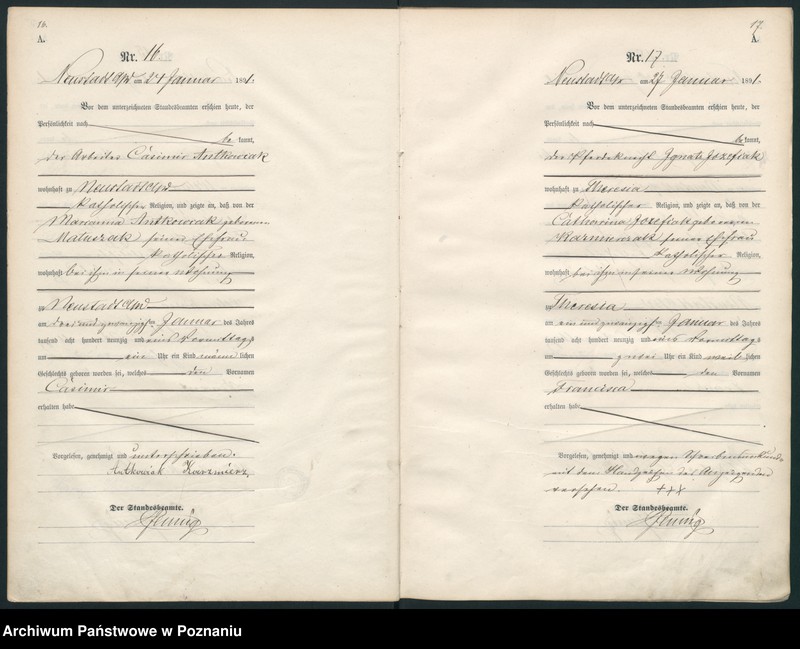 16.
A.
Nr. 16.
Neustadt a/W am 24 Januar 1891.
Vor dem unterzeichneten Standesbeamten erschien heute, der
Persönlichkeit nach
be kannt,
der Arbeiter Casimir Antkowiak
wohnhaft zu Neustadt a/W
katholischer Religion, und zeigte an, daß von der
Marianna Antkowiak geborenen
Matuszak seiner Ehefrau
katholischer Religion,
wohnhaft bei ihm in seiner Wohnung
zu Neustadt a/W
am drei und zwanzigsten Januar des Jahres
tausend acht hundert neunzig und eins Vormittags
um ein Uhr ein Kind männlichen
Geschlechts geboren worden sei, welches den Vornamen
Casimir
erhalten habe.
Vorgelesen, genehmigt und unterschrieben.
Antkowiak Kazmierz
Der Standesbeamte.
17.
A.
Nr. 17
Neustadt a/W am 27 Januar 1891.
Vor dem unterzeichneten Standesbeamten erschien heute, der
Persönlichkeit nach
be kannt,
der Pferdeknecht Ignatz Jozefiak
wohnhaft zu Theresia
katholischer Religion, und zeigte an, daß von der
Catharina Jozefiak geborenen
seiner Ehefrau
katholischer Religion,
wohnhaft bei ihm in seiner Wohnung
zu Theresia
am ein und zwanzigsten Januar des Jahres
tausend acht hundert neunzig und eins Vormittags
um zwei Uhr ein Kind weiblichen
Geschlechts geboren worden sei, welches den Vornamen
Francisca
erhalten habe.
Vorgelesen, genehmigt und wegen Schreibensunkunde
mit dem Handzeichen des Anzeigenden
versehen. +++
Der Standesbeamte.
Archiwum Państwowe w Poznaniu